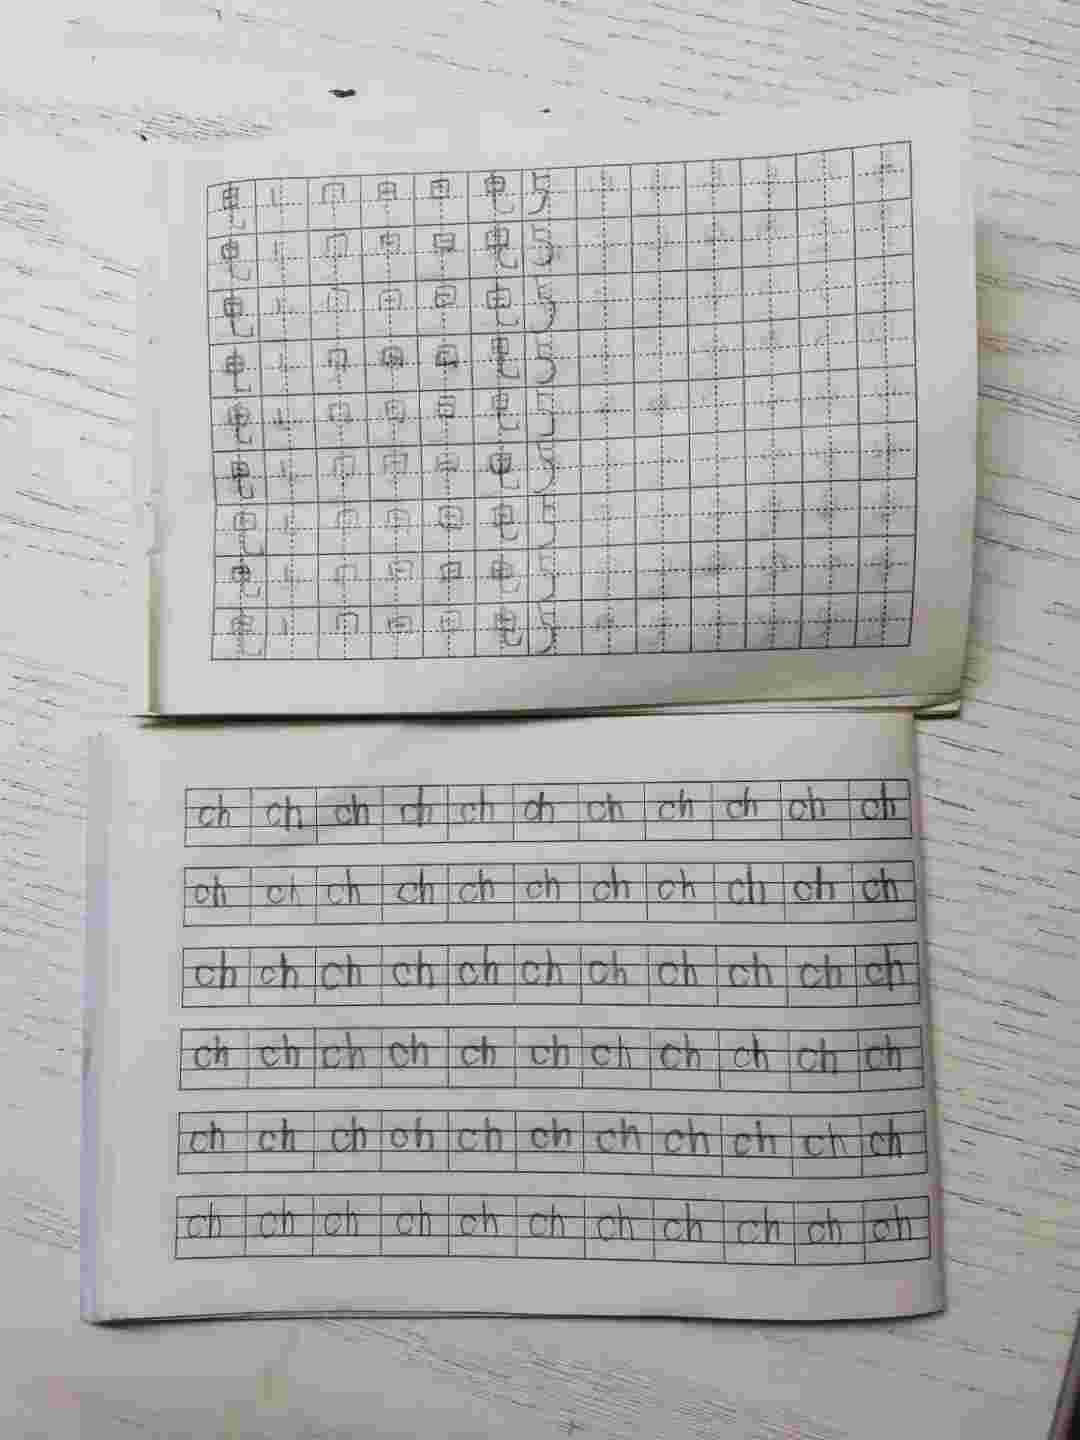 电 丨 冂 日 日 电 5
电 丨 冂 日 日 电 5
电 丨 冂 日 日 电 5
电 丨 冂 日 日 电 5
电 丨 冂 日 日 电 5
电 丨 冂 日 日 电 5
电 丨 冂 日 日 电 5
电 丨 冂 日 日 电 5
电 丨 冂 日 日 电 5
ch ch ch ch ch ch ch ch ch ch ch
ch ch ch ch ch ch ch ch ch ch ch
ch ch ch ch ch ch ch ch ch ch ch
ch ch ch ch ch ch ch ch ch ch ch
ch ch ch ch ch ch ch ch ch ch ch
ch ch ch ch ch ch ch ch ch ch ch